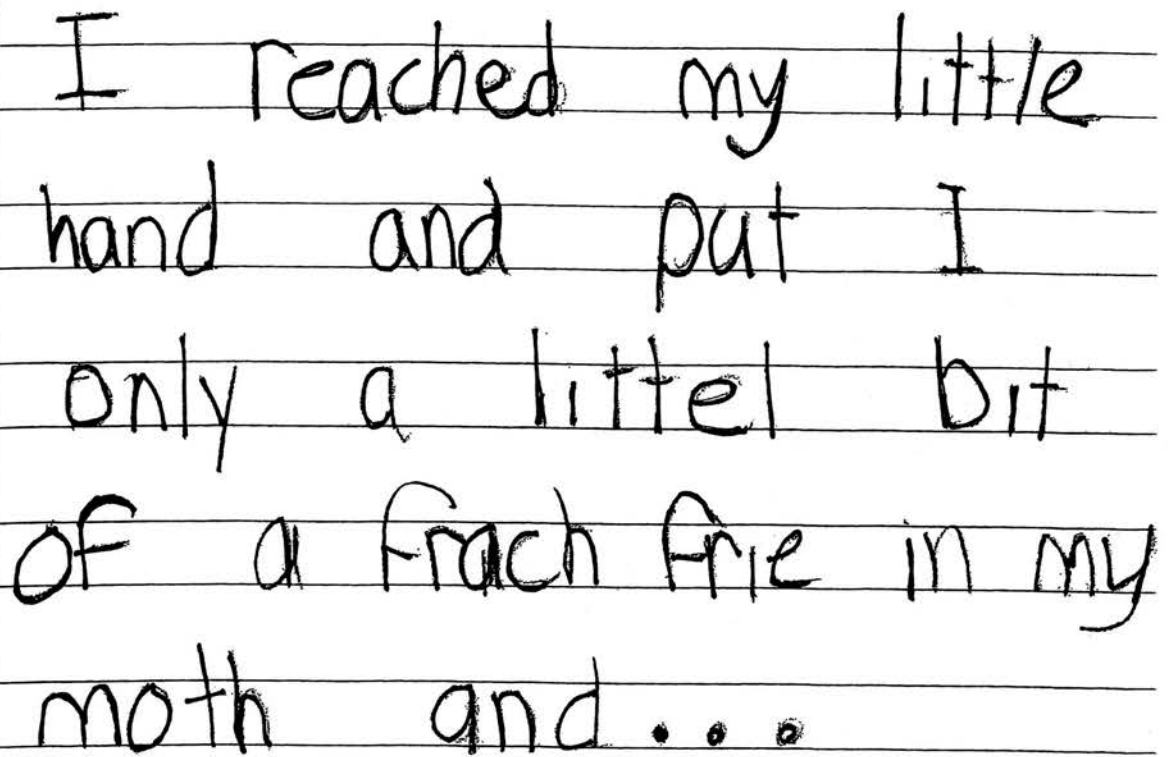 I reached my little
hand and put I
only a littel bit
of a frach frie in my
moth and...